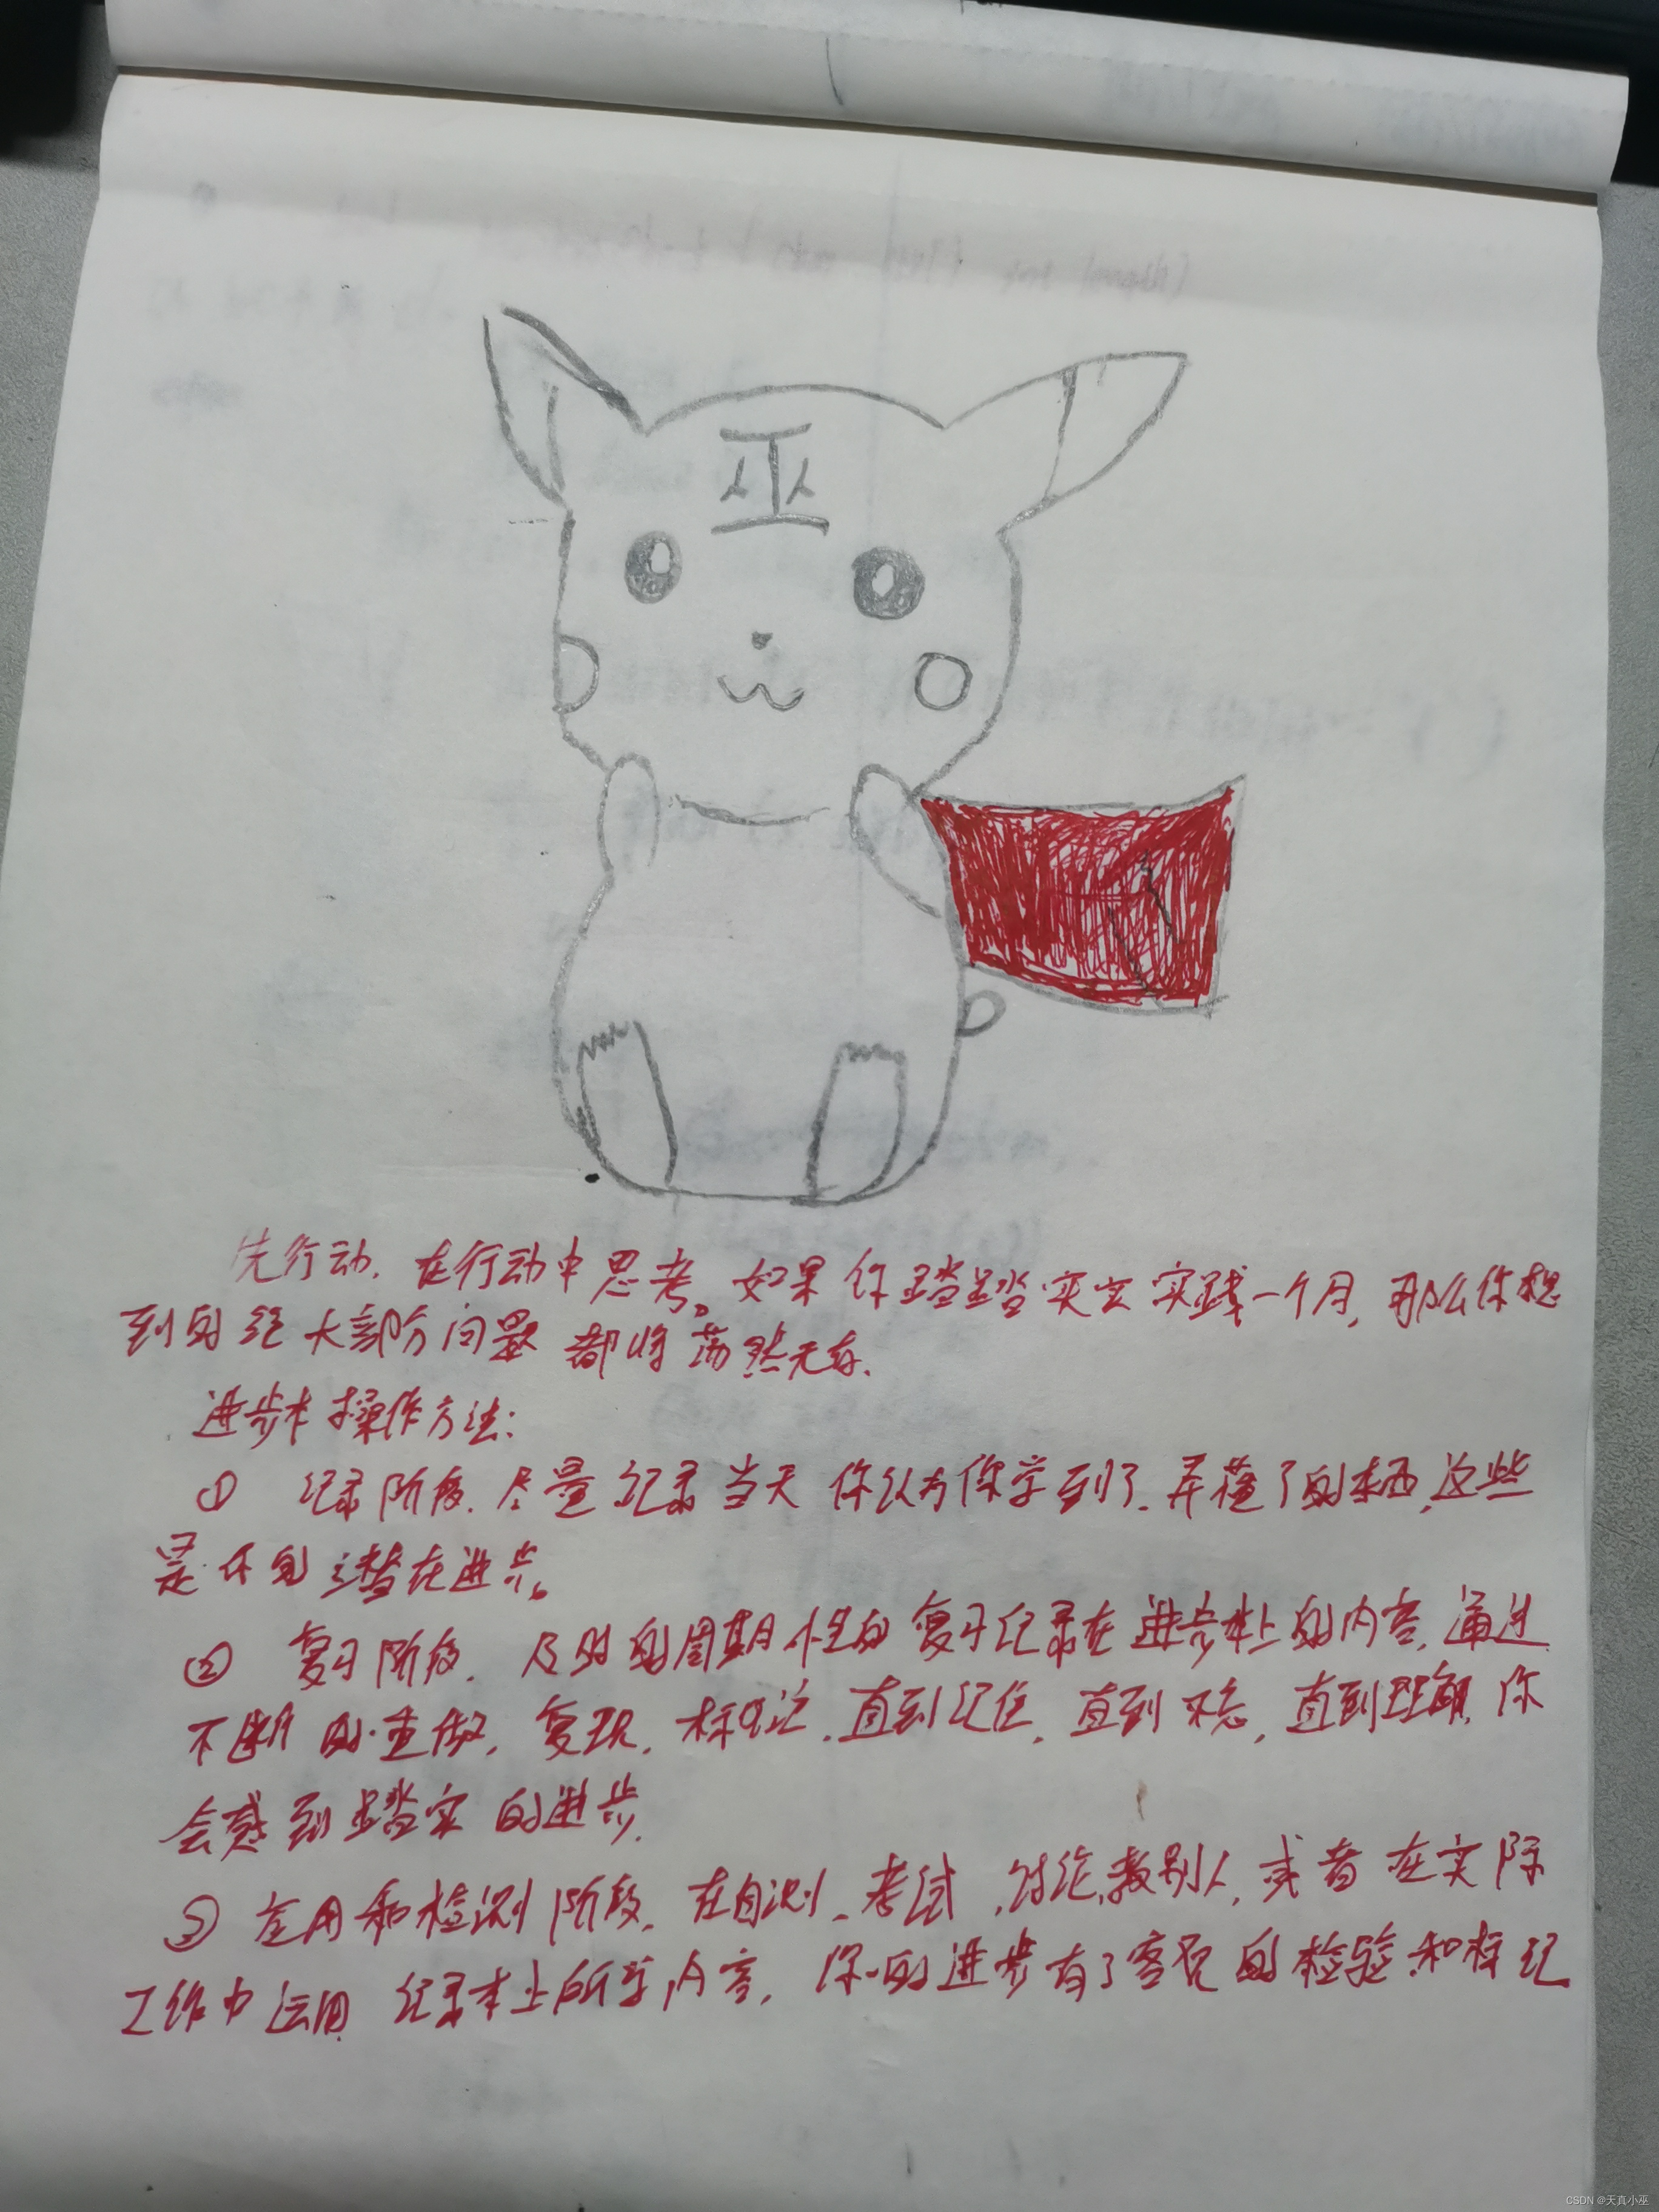 巫
先行动,在行动中思考。如果你踏踏实实实践一个月,那么你想
到的绝大部分问题都将荡然无存.
进步本操作方法:
① 记录阶段.尽量记录当天你认为你学到了.弄懂了的东西,这些
是你的潜在进步。
② 复习阶段.及时的周期性的复习记录在进步本上的内容,通过
不断的重做,复现,标记,直到记住,直到不忘,直到理解,你
会感到踏实的进步.
③ 应用和检测阶段,在自测、考试、讨论、教别人,或者在实际
工作中运用记录本上所学内容,你的进步有了客观的检验和标记
CSDN @天真小巫